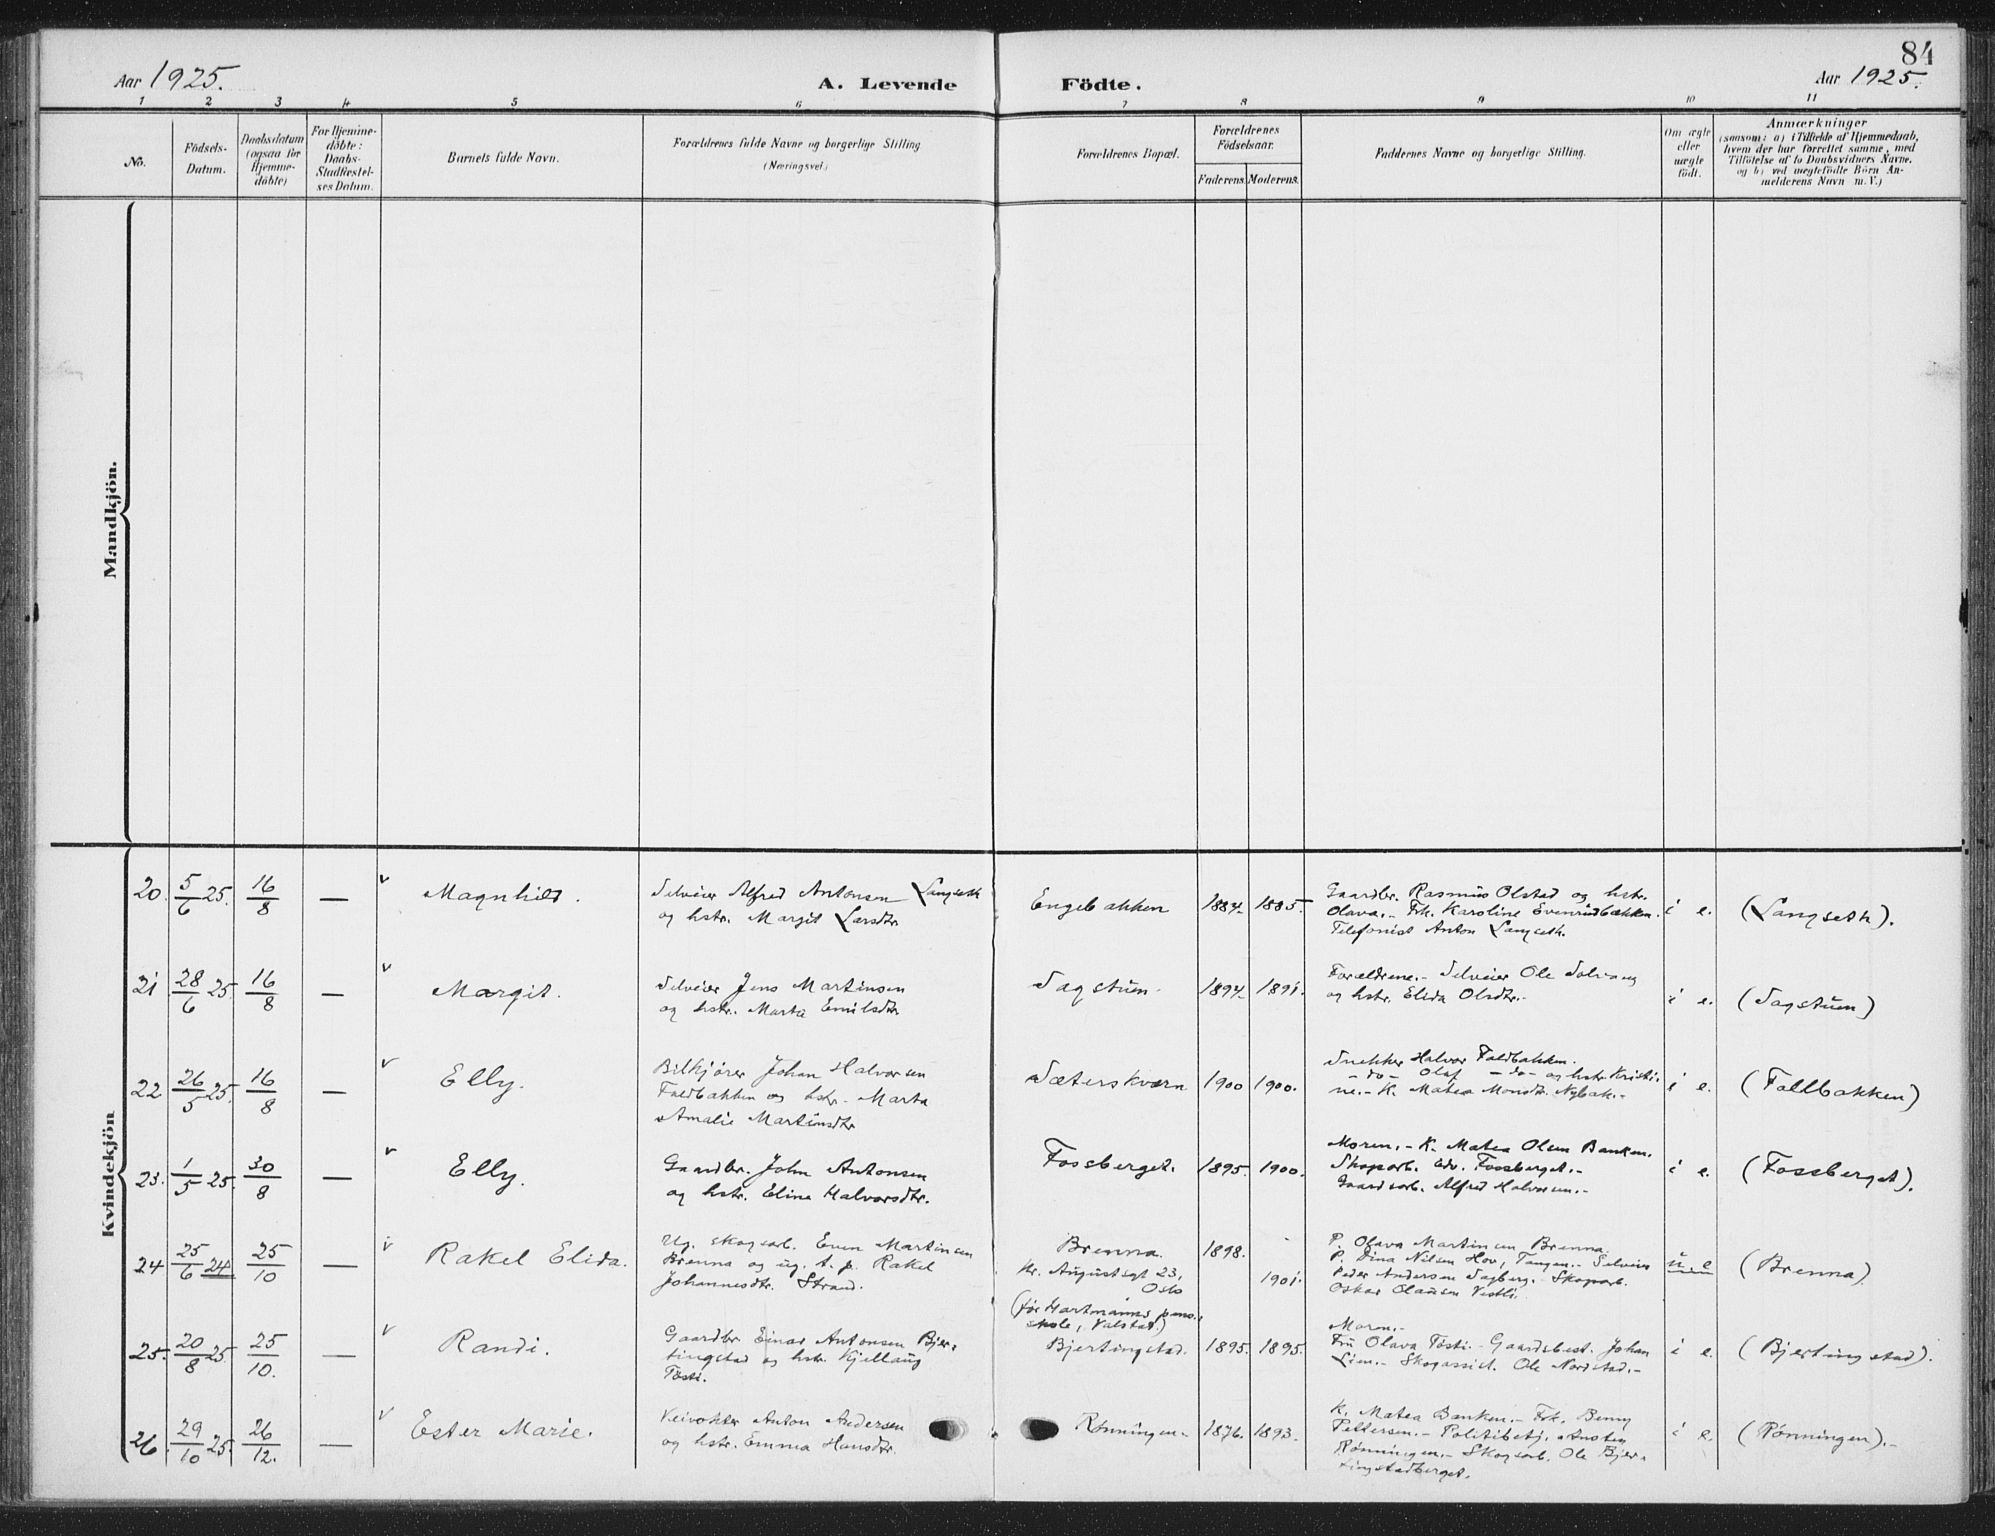 84
Aar 1925.
A. Levende
Födte.
Aar 1925.
1 2 3 4 5 6 7 8 9 10 11
No.
Födsels-
Datum.
Daabsdatum
(ogsaa for
Hjemme-
döbte)
For Hjemme-
döbte:
Daabs-
Stadfæstel-
ses Datum.
Barnets fulde Navn.
Forældrenes fulde Navne og borgerlige Stilling
(Næringsvei.)
Forældrenes Bopæl.
Forældrenes
Födselsaar.
Faderens. Moderens.
Faddernes Navne og borgerlige Stilling.
Om ægte
eller
uægte
födt.
Anmærkninger
(saasom: a) i Tilfælde af Hjemmedaab,
hvem der har forrettet samme, med
Tilföielse af to Daabsvidners Navne.
og b) ved uægtefödte Börn An-
melderens Navn m. V.)
Mandkjön.
Kvindekjön
20. 5/6 25. 16/8 — Magnhild.
Selveier Alfred Antonsen Langseth
og hstr. Margit Larsdtr.
Engebakken 1884. 1885.
Gaardbr. Rasmus Olstad og hstr.
Olava. - Frk. Karoline Evenrudbakken.
Telefonist Anton Langseth.
i e. (Langseth).
21 28/6 25. 16/8 — Margit.
Selveier Jens Martinsen
og hstr. Marta Emilsdtr.
Sagstuen. 1894. 1891.
Forældrene. - Selveier Ole Solvang
og hstr. Elida Olsdtr. -
i e. (Sagstuen)
22 26/5 25. 16/8 — Elly.
Bilkjører Johan Halvorsen
Faldbakken og hstr. Marta
Amalie Martinsdtr
Sæterskværn 1900 1900.
Snekker Halvor Faldbakken.
- do - Olaf - do - og hstr. Kristi-
ne. - K. Matea Monsdtr. Nybak. -
i e. (Fallbakken)
23. 1/5 25. 30/8 — Elly.
Gaardbr. John Antonsen
og hstr. Eline Halvorsdtr.
Fossberget. 1895. 1900.
Moren. - K. Matea Olsen Banken.
Skogarb. Edv. Fossberget. -
Gaardsarb. Alfred Halvorsen. -
i e. (Fossberget).
24 25/6 24 25/10 — Rakel Elida.
Ug. skogsarb. Even Martinsen
Brenna og ug. t. p. Rakel
Johannesdtr. Strand.
Brenna. 1898.
Kr. Augustsgt 23,
Oslo 1901.
(før Hartmanns pens.
skole, Valstad.)
P. Olava Martinsen Brenna.
P. Dina Nilsen Hov, Tangen. - Selveier
Peder Andersen Sagberg. - Skogarb.
Oskar Olausen Vestli.
u. e (Brenna)
25. 20/8 25. 25/10. — Randi.
Gaardbr. Einar Antonsen Bjer-
tingstad og hstr. Kjellaug
Tøsti.
Bjertingstad. 1895. 1895.
Moren. -
Fru Olava Tøsti. - Gaardsbest. Johan
Lien. - Skogassist. Ole Nordstad. -
i e. (Bjertingstad).
26. 29/10 25. 26/12. — Ester Marie.
Veivokter Anton Andersen
og hstr. Emma Hansdtr.
Rønningen. 1876. 1893.
K. Matea Banken. - Frk. Benny
Pettersen. - Politibetj. Ansten
Rønningen. - Skogsarb. Ole Bjer-
tingstadberget.
i e. (Rønningen). -